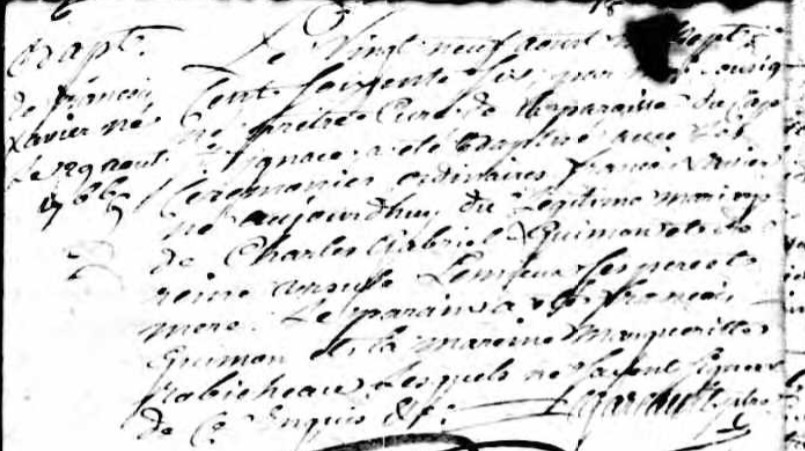 Bapt.
de françois
Xavier né
le 29 aout
1766
Le Vingt neuf aout mil Sept
Cent Soixante Six, par Nous Sousig-
né prêtre Curé de la paroisse du Cap
St ignace, a été Baptisé avec les
Ceremonies ordinaires françois Xavier
né aujourdhuy du Legitime mariage
de Charles Gabriel Guimon et de
reine ursule Lemieux Ses pere et
mere. Le parain a été françois
Guimon et la mareine Margueritte
Robicheau, Lesquels ne Savent Signer
de Ce Enquis &c.